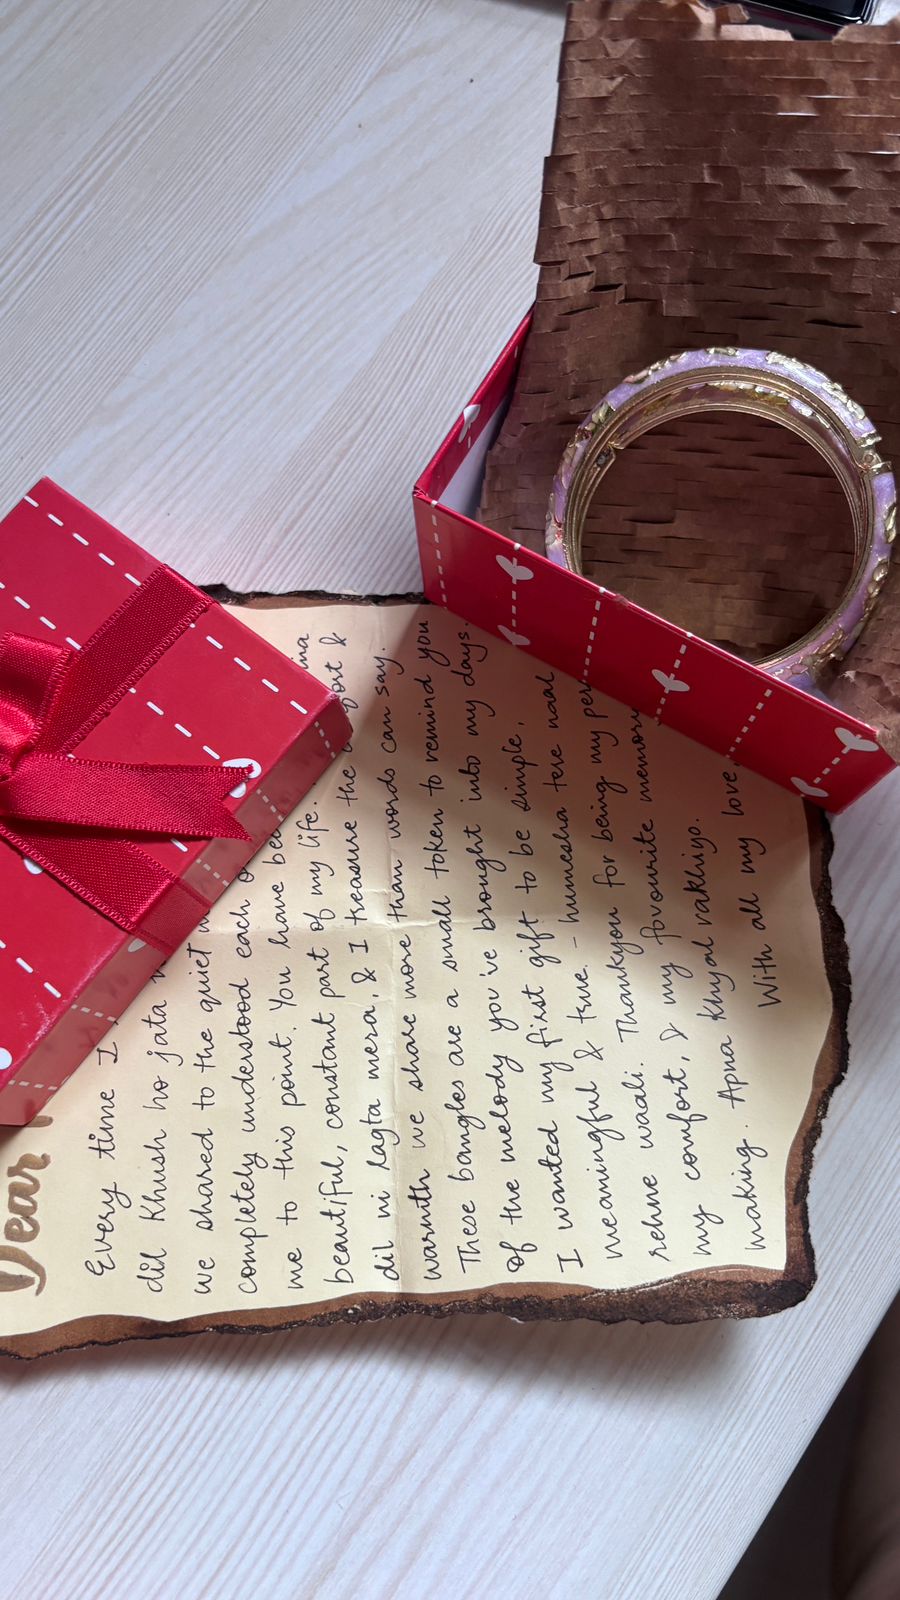 Dear
Every time I
dil khush ho jata
we shared to the quiet
completely understood each
me to this point. You have
beautiful, constant part of my life.
dil ni lagta mera, & I treasure the &
warmth we share more than words can say.
These bangles are a small token to remind you
of the melody you've brought into my days.
I wanted my first gift to be simple,
meaningful & true - humesha tere naal
rehne waali. Thankyou for being my
my comfort, & my favourite
making. Apna khyal rakhiyo.
With all my love,